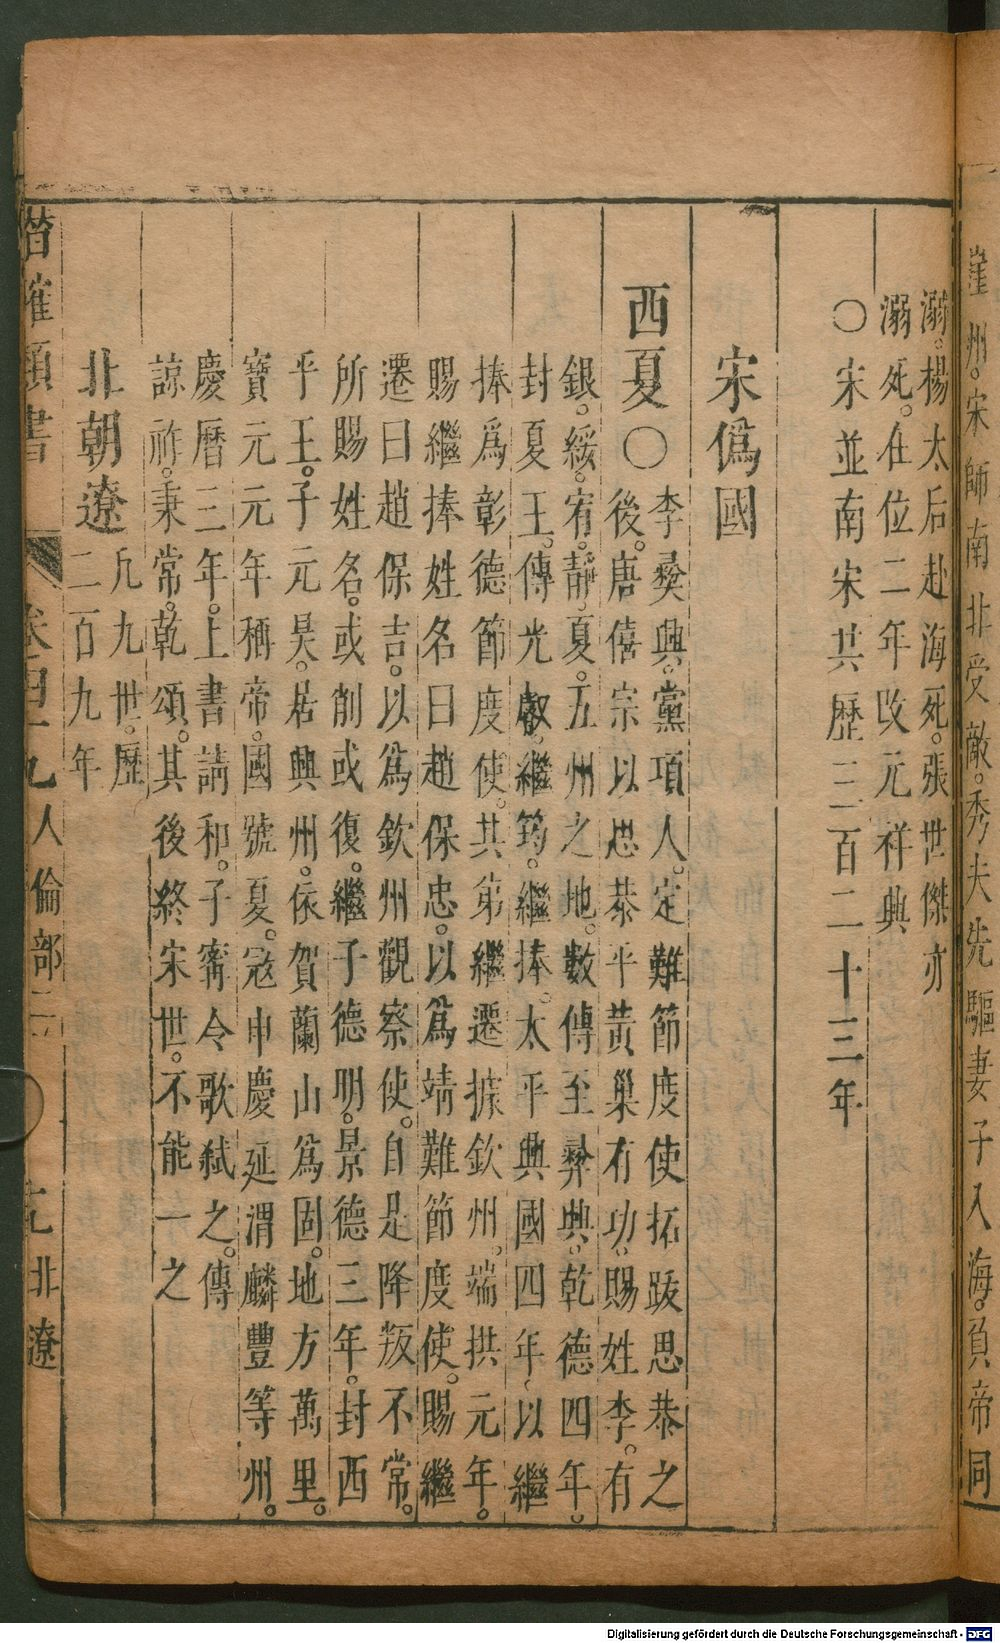 崖州。宋師南非受敵。秀夫先驅妻子入海。負帝同
溺。楊太后赴海死。張世傑亦
溺死。在位二年改元祥興
〇宋並南宋共歷三百二十三年
宋僞國
西夏〇
李彝興。黨項人。定難節度使拓跋思恭之
後。唐僖宗以思恭平黃巢有功。賜姓李。有
銀。綏。宥。靜。夏。五州之地。數傳至彝興。乾德四年。
封夏王。傳光叡。繼筠。繼捧。太平興國四年。以繼
捧爲彰德節度使。其弟繼遷據欽州。端拱元年。
賜繼捧姓名曰趙保忠。以爲靖難節度使。賜繼
遷曰趙保吉。以爲欽州觀察使。自是降叛不常。
所賜姓名。或削或復。繼子德明。景德三年。封西
平王。子元昊。居興州。依賀蘭山爲固。地方萬里。
寶元元年稱帝。國號夏。寇申慶延渭麟豐等州。
慶曆三年。上書請和。子甯令歌弑之。傳
諒祚。秉常。乾頌。其後終宋世。不能一之
北朝遼
凡九世。歷
二百九年
卷四十九 人倫部二 北遼
Digitalisierung gefördert durch die Deutsche Forschungsgemeinschaft - DFG